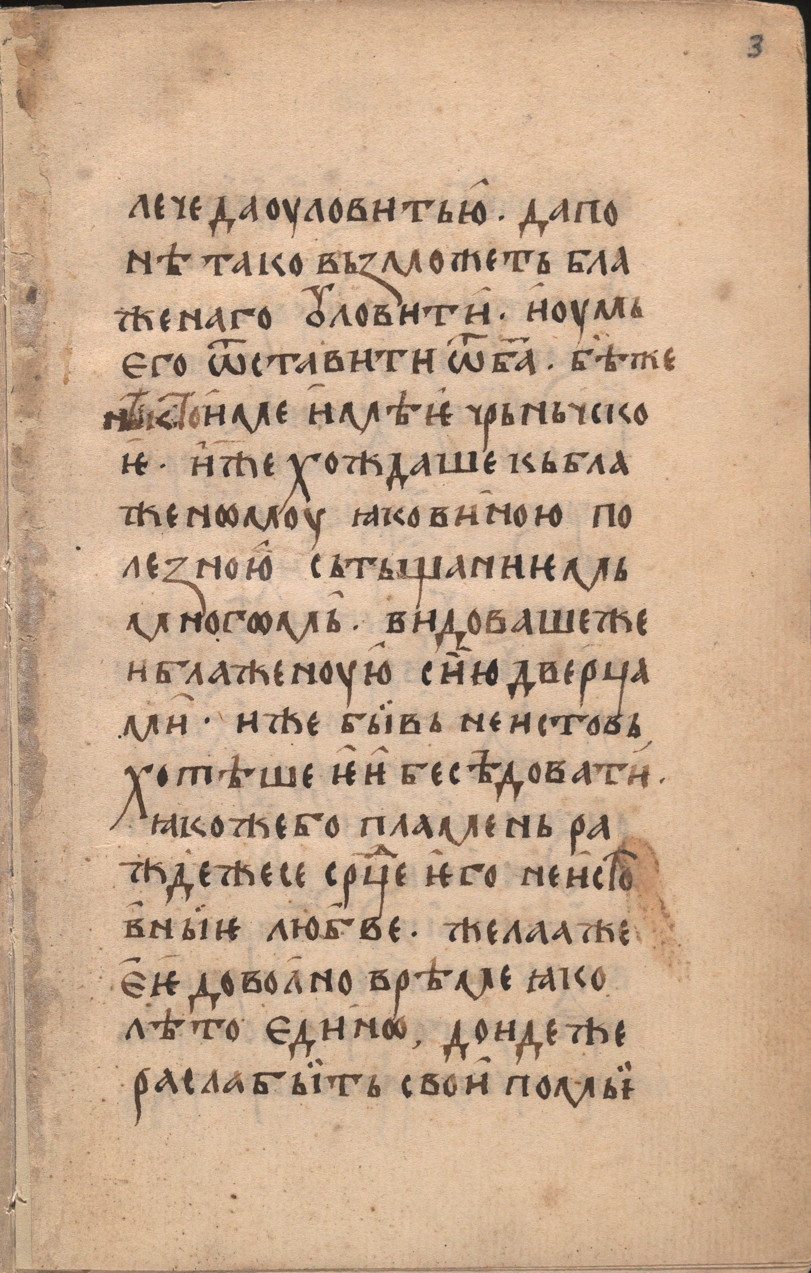 3
лече да оуловить ю҆̑. да по
нѣ тако възможеть бла
женаго ꙋловити̑. и҆ оумь
ѥго ѿставити ѿ б҃а. бѣ же
и҆ме и҆мѣѥ чрьньчско
ѥ. и҆же хождаше кь бла
женѡмоу ꙗко виною по
лезною̑ сьтыщанниѥмь
многѡмь̑. видоваше же
и блаженоую̑ сї̑ю дверца
ми̑. иже бывь неистовь
хотѣше ѥ҆и̑ бесѣдовати̑.
ꙗкоже бо пламень ра
ждеже се ср҃це ѥго неист̑о
в̑ныѥ люб̑ве. желаа же
ѥ҆ѥ довол̑но врѣме ꙗко
лѣто ѥдинѡ, дондеже
раслабыть свои̑ помы